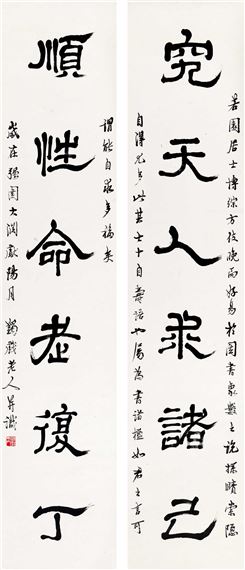 若園居士博綜方伎晚而好易於圖書象數之說探賾索隱
究天人求諸己
自得尤多此其七十自壽語也屬為書諸楹如君之言可
謂能自求多福矣
順性命老復丁
歲在強圉大淵獻陽月 蠲戲老人并識